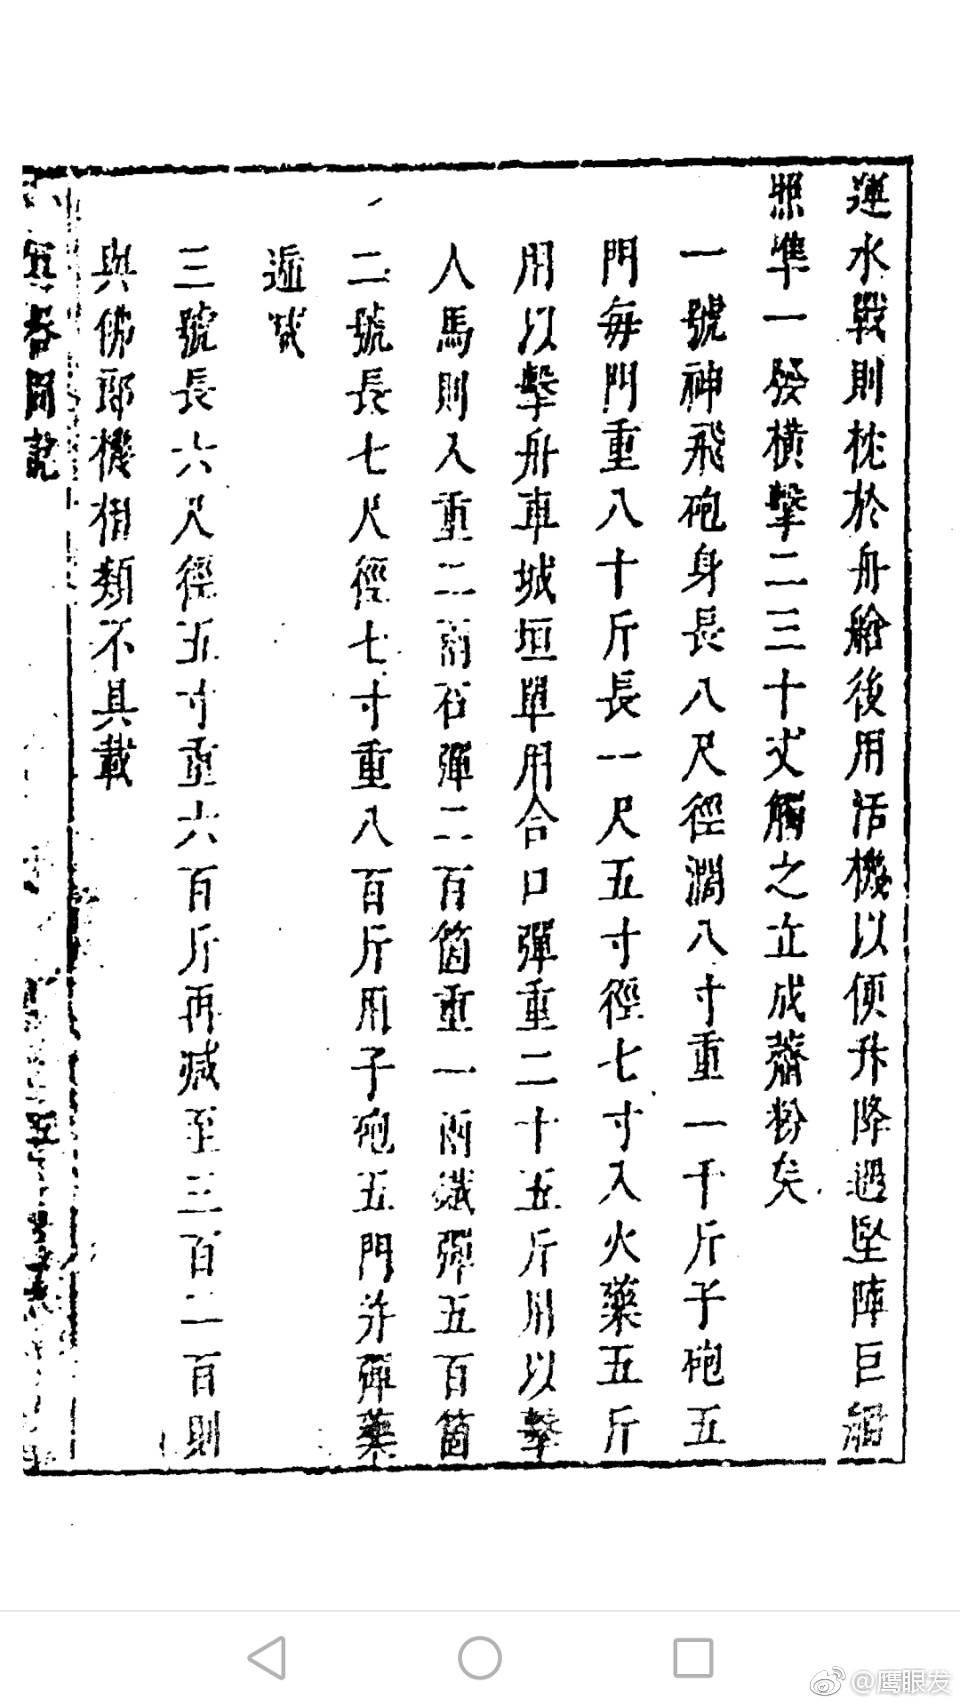 運水戰則枕於舟艙後用活機以便升降遇堅陣巨艦
照準一發橫擊二三十丈觸之立成虀粉矣
一號神飛砲身長八尺徑濶八寸重一千斤子砲五
門每門重八十斤長一尺五寸徑七寸入火藥五斤
用以擊舟車城垣單用合口彈重二十五斤用以擊
人馬則入重二兩石彈二百箇重一兩鐵彈五百箇
二號長七尺徑七寸重八百斤用子砲五門并彈藥
遞減
三號長六尺徑五寸重六百斤再減至三百二百則
與佛郎機相類不具載
圖說
@鹰眼发